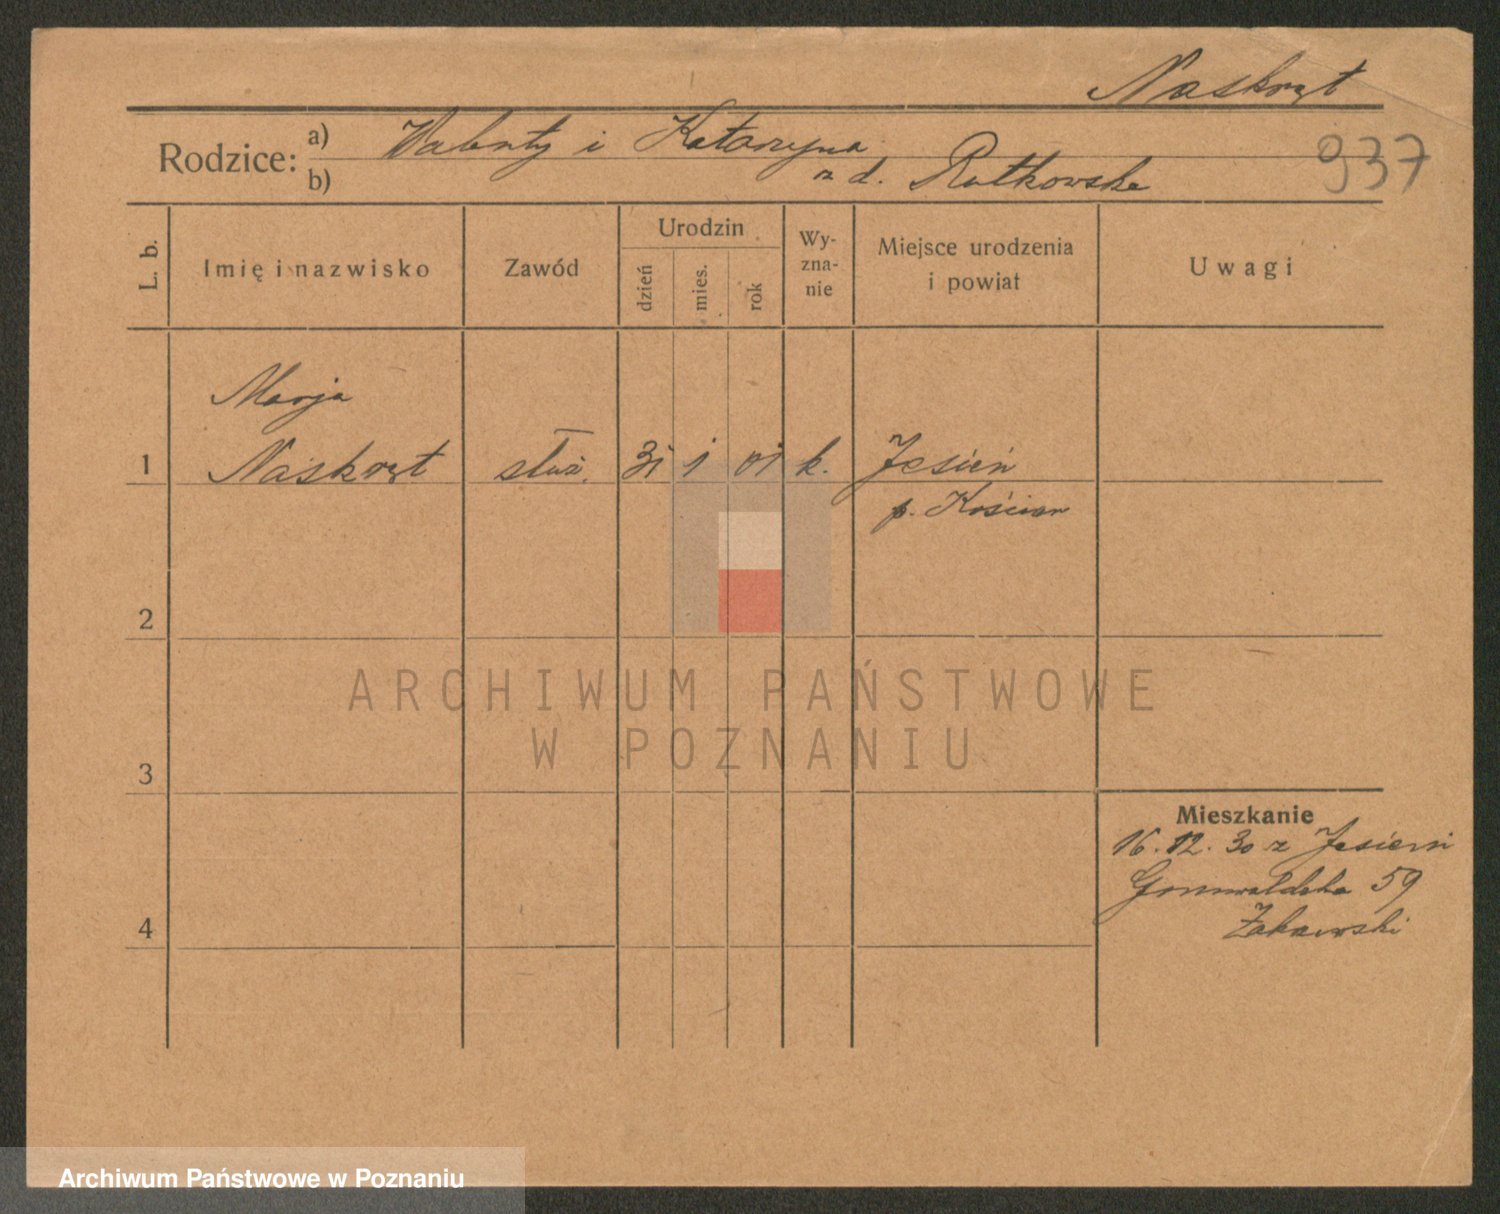 Naskręt
Rodzice: a) Walenty i Katarzyna
b) z d. Rutkowska
937
L. b.
Imię i nazwisko
Zawód
Urodzin
dzień
mies.
rok
Wy-
zna-
nie
Miejsce urodzenia
i powiat
Uwagi
Marja
1 Naskręt służ. 31 1 01 k. Jesień
p. Kościan
2
ARCHIWUM PAŃSTWOWE
W POZNANIU
3
Mieszkanie
16.12.30 z Jesieni
Grunwaldzka 59
4
Archiwum Państwowe w Poznaniu